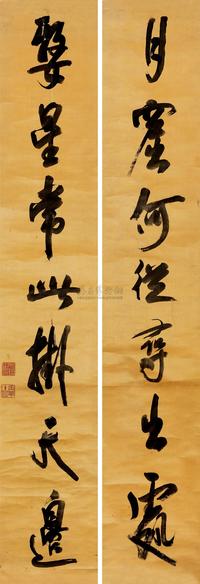 月窟何從尋出處
婺星常此掛天邊